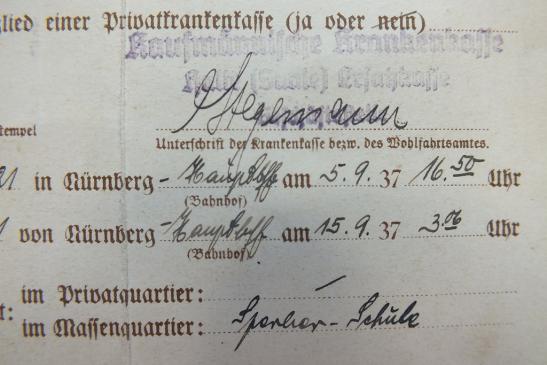 glied einer Privatkrankenkasse (ja oder nein)
Kaufmännische Krankenkasse
Halle (Saale) Ersatzkasse
Stegemann
stempel
Unterschrift der Krankenkasse bezw. des Wohlfahrtsamtes.
in Nürnberg- Hauptbhf am 5.9. 37 16.50 Uhr
(Bahnhof)
von Nürnberg- Hauptbhf am 15.9. 37 3.06 Uhr
(Bahnhof)
im Privatquartier: —
t:
im Massenquartier: Sperber-Schule